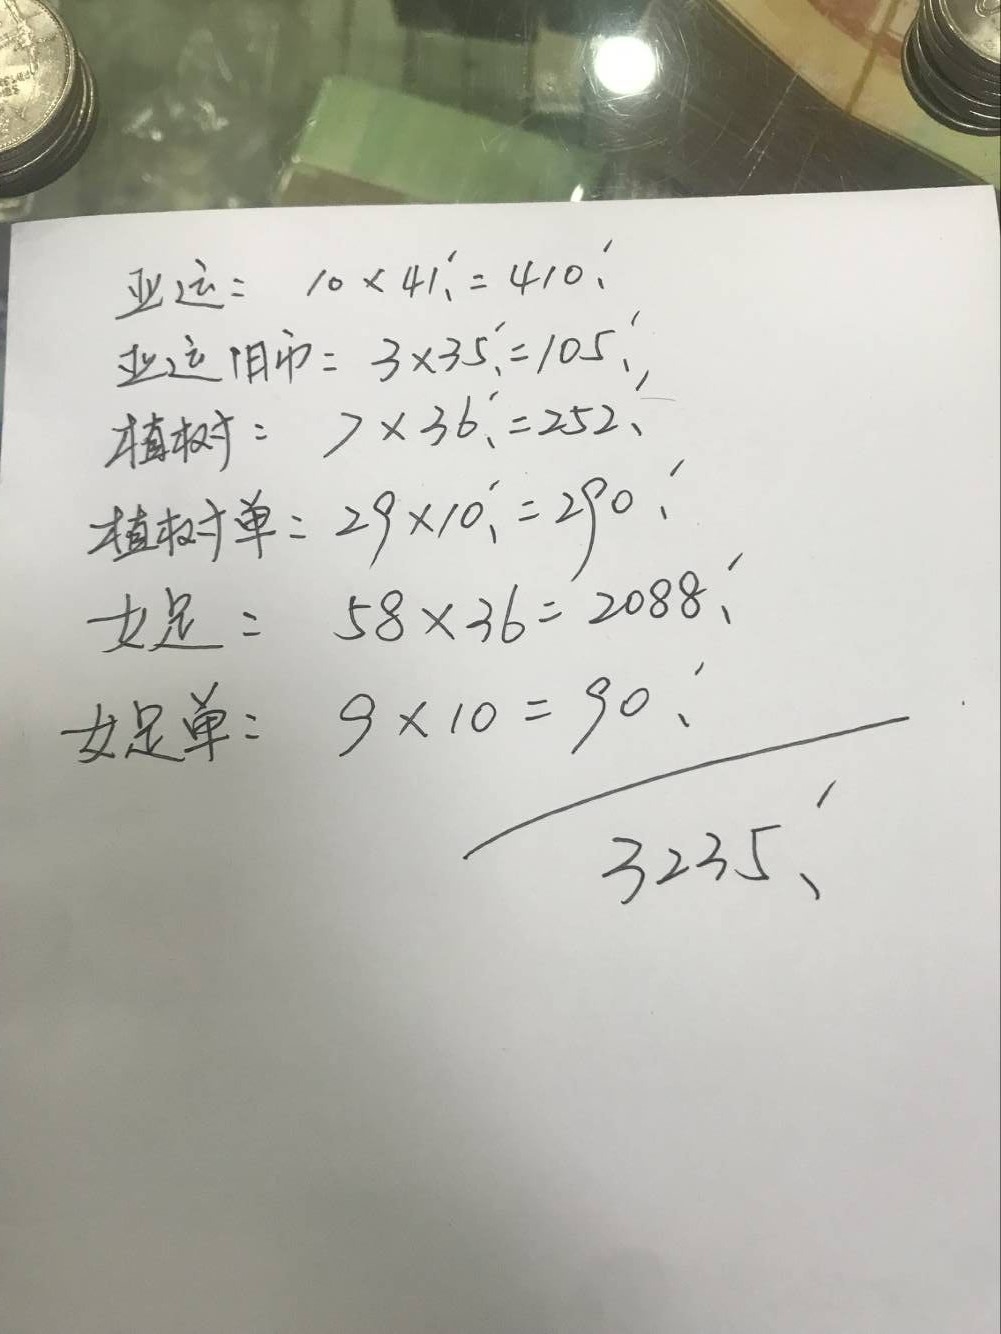 亚运: 10×41=410
亚运旧币=3×35=105
植树: 7×36=252
植树单: 29×10=290
女足: 58×36=2088
女足单: 9×10=90
3235